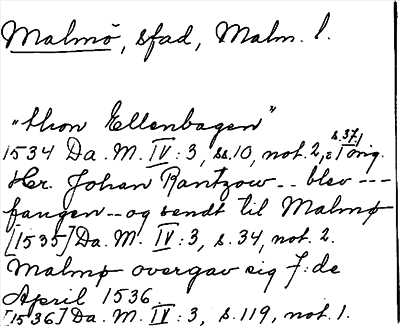 Malmö, stad, Malm. l.
"thon Ellenbagen"
s. 37,
1534 Da. M. IV: 3, ss. 10, not. 2, i orig.
Hr. Johan Rantzow -- blev ---
fangen -- og sendt til Malmø
[1535] Da. M. IV: 3, s. 34, not. 2.
Malmø overgav sig 7:de
April 1536.
[1536] Da. M. IV: 3, s. 119, not. 1.